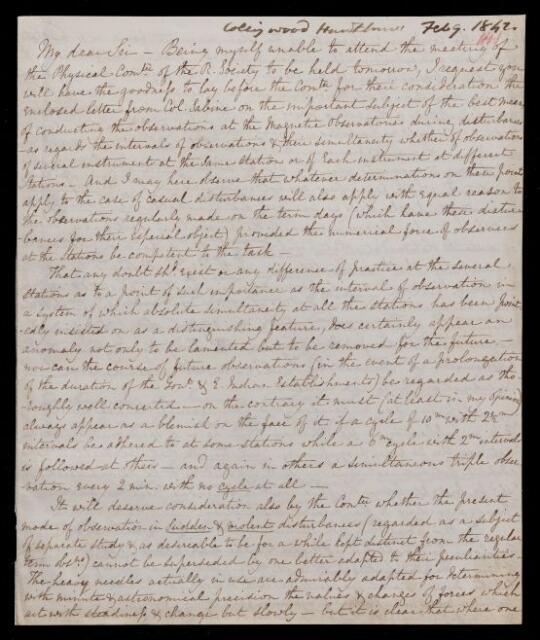 Collingwood Hawkhurst Feb 9. 1842.
My dear Sir – Being myself unable to attend the meeting of
the Physical Com.tee of the R. Society to be held tomorrow, I request you
will have the goodness to lay before the Com.tee for their consideration the
enclosed letter from Col. Sabine on the important subject of the best means
of conducting the observations at the Magnetic Observatories during disturbances
– as regards the intervals of observations & their simultaneity whether of observations
of several instrument at the same station or of each instrument at different
stations – And I may here observe that whatever determinations on these points
apply to the case of casual disturbances will also apply with equal reason to
the observations regularly made on the term days (which have these distur-
bances for their especial object) provided the numerical force of observers
at the stations be competent to the task –
That any doubt sh.d exist or any difference of practice at the several
stations as to a point of such importance as the interval of observation in
a system of which absolute simultaneity at all the stations has been point
edly insisted on as a distinguishing feature, does certainly appear an
anomaly not only to be lamented but to be removed for the future –
nor can the course of future observations (in the event of a prolongation
of the duration of the Gov.t & E. Indian Establishments) be regarded as tho-
roughly well concerted – on the contrary it must (at least in my opinion)
always appear as a blemish on the face of it if a cycle of 10m with 2½m
intervals be adhered to at some stations while a 6m cycle with 2m intervals
is followed at others – and again in others a simultaneous triple obser
nation every 2 min. with no cycle at all –
It will deserve consideration also by the Com.tee whether the present
mode of observation in sudden & violent disturbances (regarded as a subject
of separate study & as desireable to be for a while kept distinct from the regular
term obs.ns) cannot be superseded by one better adapted to their peculiarities –
The heavy needles actually in use are admirably adapted for determining
with minute & astronomical precision the values & changes of forces which
act with steadiness & change but slowly – but it is clear that where one